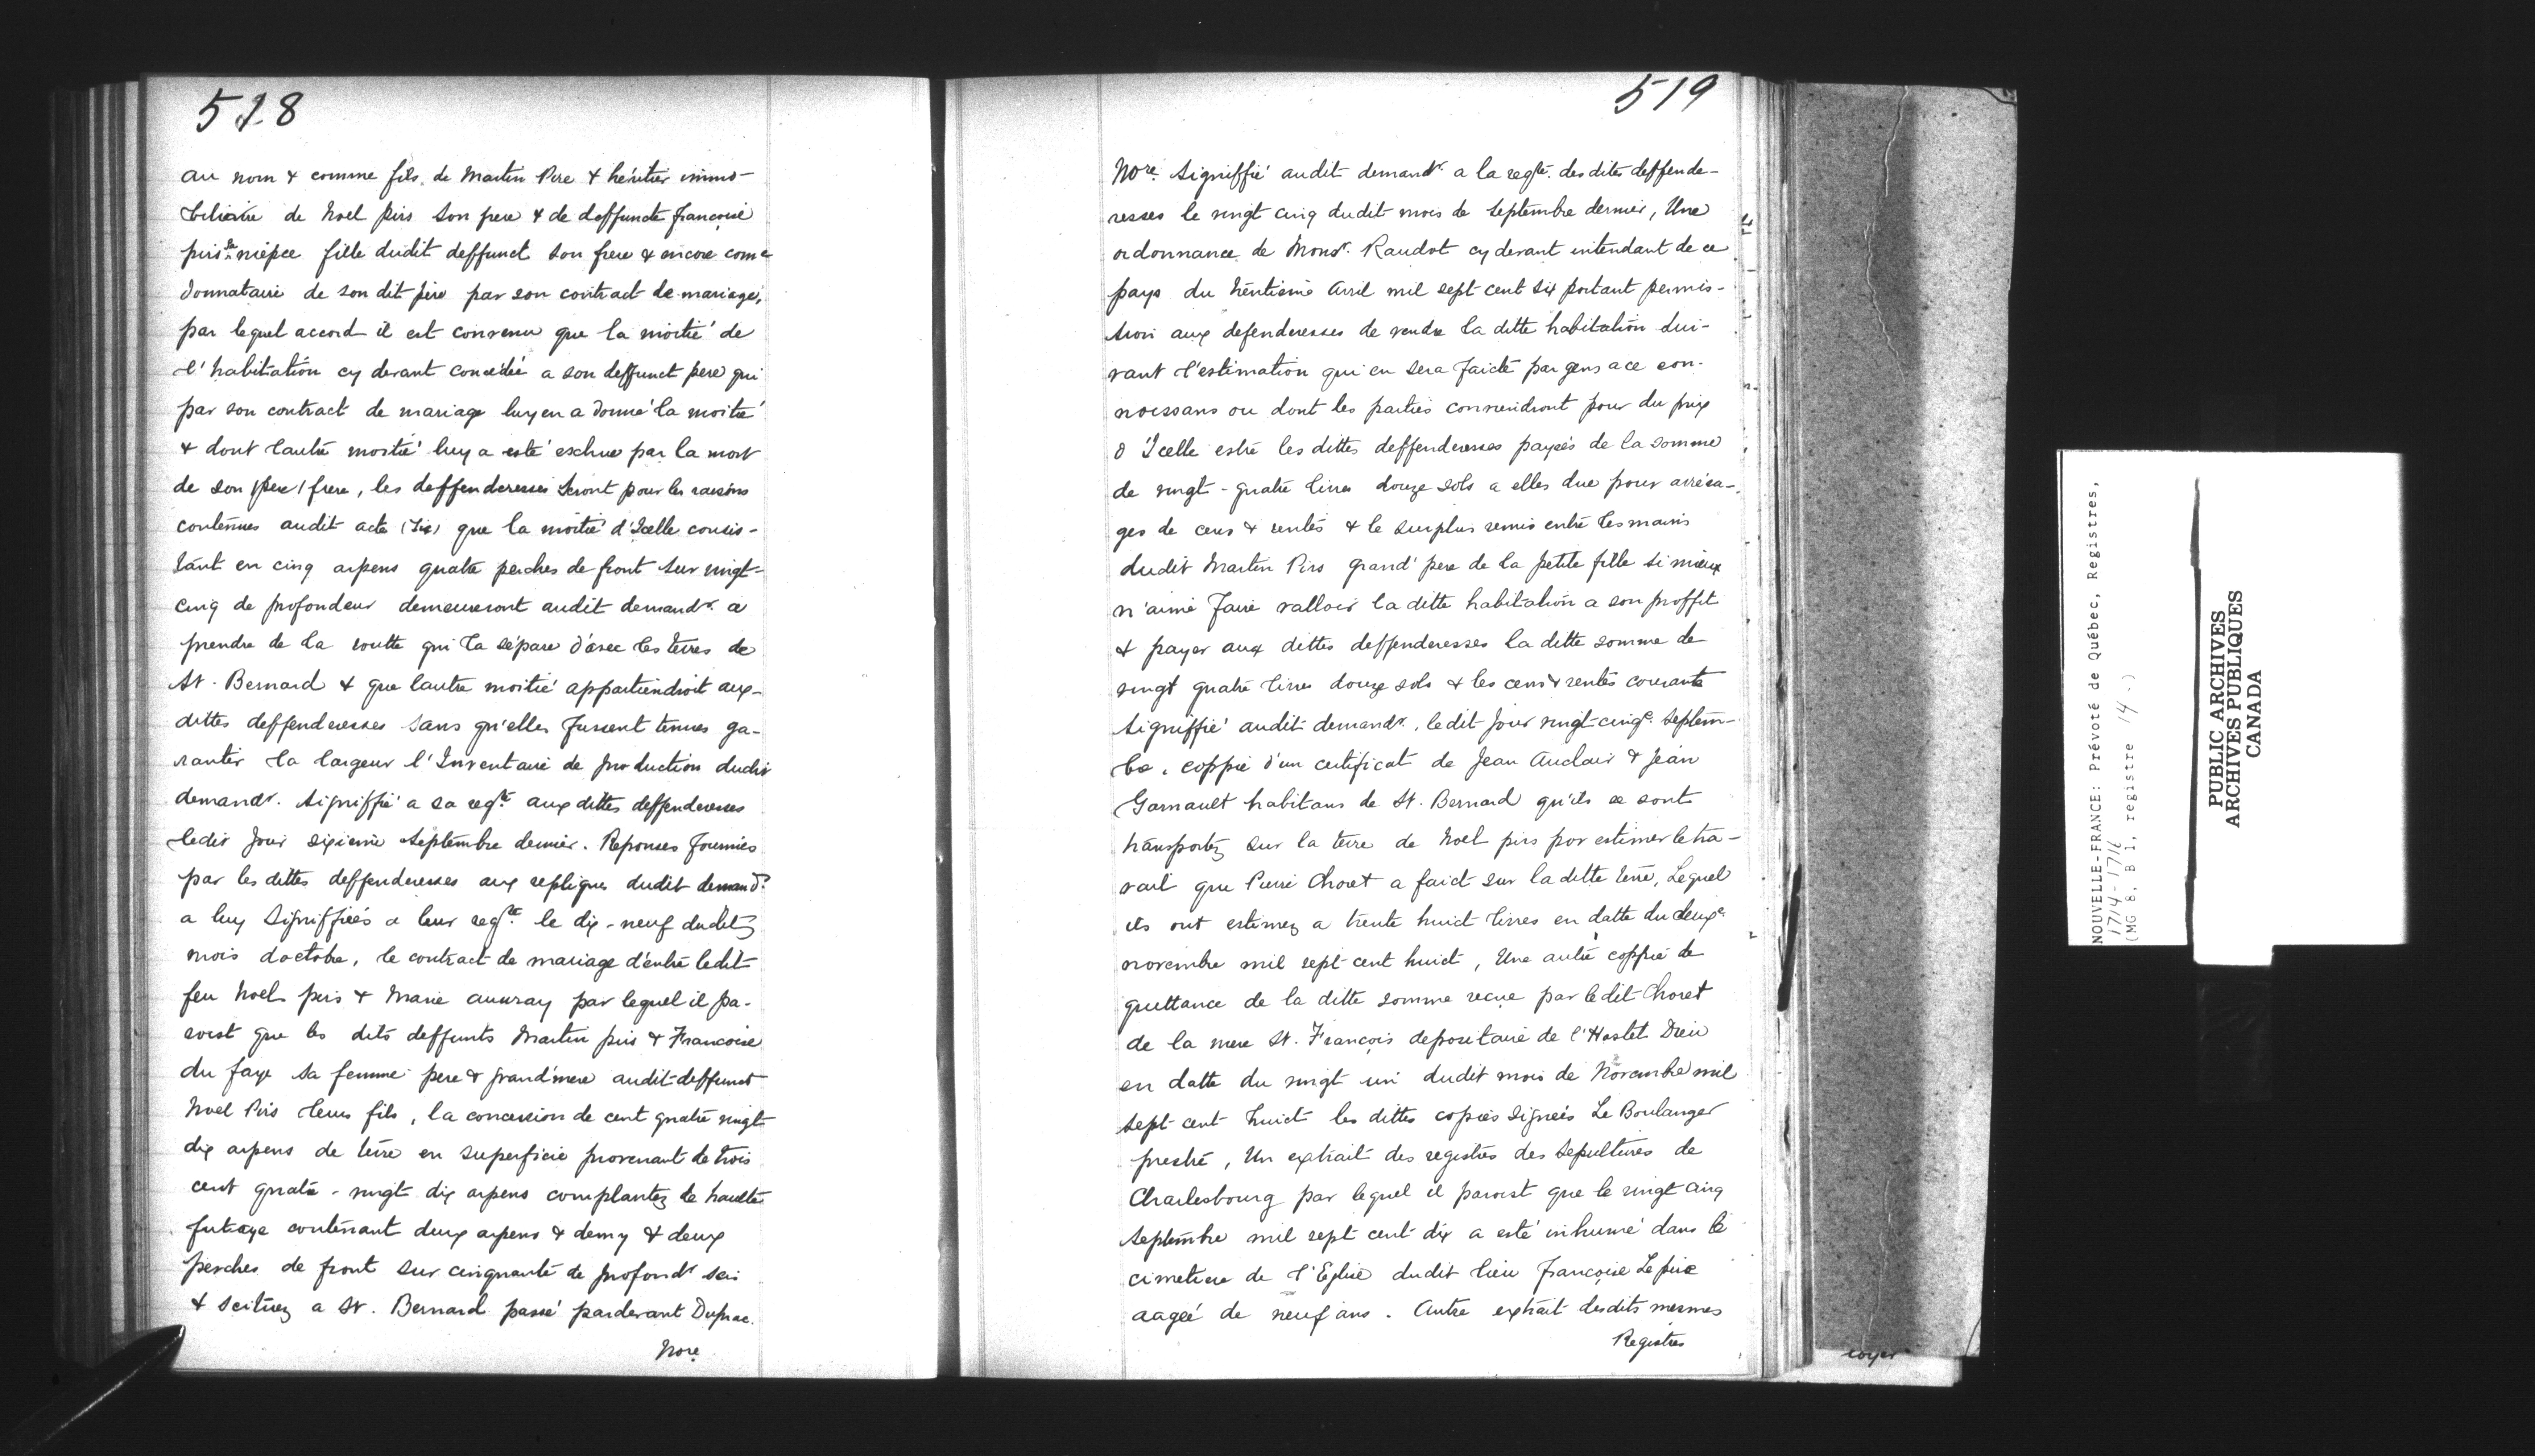 518
au nom & comme fils de Martin Pire & héritier immo-
biliaire de Noel Piris son frere & de deffuncte françoise
piris sa niépce fille dudit deffunct son frere & encore come
donnataire de son dit père par son contract de mariage,
par lequel accord il est convenu que la moitié de
l'habitation cy devant concédée a son deffunct pere qui
par son contract de mariage luy en a donné la moitié
& dont lautre moitié luy a esté eschue par la mort
de son (pere) frere, les deffenderesses seront pour les raisons
contenues audit acte (sic) que la moitié d'Icelle consis-
tant en cinq arpens quatre perches de front sur vingt-
cinq de profondeur demeureront audit demandr. a
prendre de la routte qui la sépare d'avec les terres de
St. Bernard & que lautre moitié appartiendroit aux-
dittes deffenderesses sans qu'elles fussent tenues ga-
rantir la largeur l'Inventaire de production dudit
demandr. signiffié a sa reqte. aux dittes deffenderesses
ledit jour sixieme septembre dernier. Reponses fournies
par les dittes deffenderesses aux repliques dudit demandr.
a luy signiffiées a leur reqte. le dix-neuf dudit
mois doctobre, le contract de mariage d'entre ledit
feu Noel piris & Marie auuray par lequel il pa-
roist que les dits deffunts Martin piris & Francoise
du faye sa femme pere & grand'mere audit deffunct
Noel Piris leur fils, la concession de cent quatre vingt
dix arpens de terre en superficie provenant de trois
cent quatre-vingt dix arpens complantez de haulte
futaye contenant deux arpens & demy & deux
perches de front sur cinquante de profondr sis
& scituez a St. Bernard passé pardevant Duprac.
Nore
519
Nore. signiffié audit demandr. a la reqte. des dites deffende-
resses le vingt cinq dudit mois de septembre dernier, Une
ordonnance de Monsr. Raudot cy devant intendant de ce
pays du trentieme avril mil sept cent six portant permis-
sion aux defenderesses de vendre la ditte habitation sui-
vant l'estimation qui en sera faicte par gens a ce con-
noissans ou dont les parties conviendront pour du prix
d'Icelle estre les dittes deffenderesses payées de la somme
de vingt-quatre livres douze sols a elles due pour arréra-
ges de cens & rentes & le surplus remis entre les mains
dudit Martin Piris grand' pere de la petite fille si mieux
n'aime faire valloir la ditte habitation a son proffit
& payer aux dittes deffenderesses la ditte somme de
vingt quatre livres douze sols & les cens & rentes courante
signiffié audit demandr. ledit jour vingt-cinqe. septem-
bre. coppie d'un certificat de Jean Auclair & Jean
Garnault habitans de St. Bernard qu'ils se sont
transportez sur la terre de Noel piris por estimer le tra-
vail que Pierre Choret a faict sur la ditte terre, Lequel
ils ont estimez a trente huict livres en datte du deuxe.
novembre mil sept cent huict, Une autre coppie de
quittance de la ditte somme reçue par ledit Choret
de la mere St. François depositaire de l'Hostel Dieu
en datte du vingt un dudit mois de Novembre mil
sept cent huict les dittes copies signées Le Boulanger
prestre, Un extrait des registres des sepultures de
Charlesbourg par lequel il paroist que le vingt cinq
septembre mil sept cent dix a esté inhumé dans le
cimetiere de l'Eglise dudit lieu françoise Le pire
aagée de neuf ans. Autre extrait desdits mesmes
Registres
NOUVELLE-FRANCE: Prévoté de Québec, Registres,
1714-1716
(MG 8, B 1, registre 14.)
PUBLIC ARCHIVES
ARCHIVES PUBLIQUES
CANADA